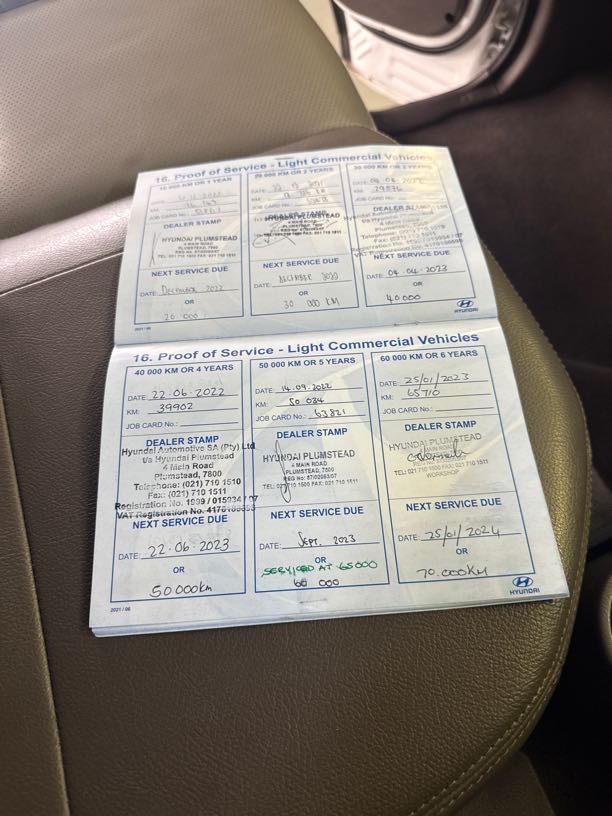 16. Proof of Service - Light Commercial Vehicles
10 000 KM OR 1 YEAR
DATE:
KM:
JOB CARD No.:
DEALER STAMP
HYUNDAI PLUMSTEAD
4 MAIN ROAD
PLUMSTEAD, 7800
TEL: 021 710 1500 FAX: 021 710 1511
NEXT SERVICE DUE
DATE: DECEMBER 2022
OR
20 000
20 000 KM OR 2 YEARS
DATE:
KM:
JOB CARD No.:
DEALER STAMP
HYUNDAI PLUMSTEAD
4 MAIN ROAD
PLUMSTEAD, 7800
NEXT SERVICE DUE
DATE: DECEMBER
OR
30 000 KM
30 000 KM OR 3 YEARS
DATE:
KM:
JOB CARD No.:
DEALER STAMP
Hyundai Automotive SA (Pty) Ltd
t/a Hyundai Plumstead
4 Main Road
Plumstead, 7800
NEXT SERVICE DUE
DATE: 04.04.2023
OR
40 000
HYUNDAI
2021 / 06
16. Proof of Service - Light Commercial Vehicles
40 000 KM OR 4 YEARS
DATE: 22.06.2022
KM: 39902
JOB CARD No.:
DEALER STAMP
Hyundai Automotive SA (Pty) Ltd
t/a Hyundai Plumstead
4 Main Road
Plumstead, 7800
Telephone: (021) 710 1510
Fax: (021) 710 1511
Registration No. 1999 / 015934 / 07
VAT Registration No.
NEXT SERVICE DUE
DATE: 22.06.2023
OR
50 000km
50 000 KM OR 5 YEARS
DATE: 14.09.2022
KM: 50 034
JOB CARD No.: 63821
DEALER STAMP
HYUNDAI PLUMSTEAD
4 MAIN ROAD
PLUMSTEAD, 7800
REG No: 87/02063/07
TEL: 021 710 1500 FAX: 021 710 1511
NEXT SERVICE DUE
DATE: SEPT. 2023
OR
SERVICED AT 65000
60 000
60 000 KM OR 6 YEARS
DATE: 25/01/2023
KM: 65710
JOB CARD No.:
DEALER STAMP
HYUNDAI PLUMSTEAD
MAIN ROAD
TEL: 021 710 1500 FAX: 021 710 1511
WORKSHOP
NEXT SERVICE DUE
DATE: 25/01/2024
OR
70.000KM
HYUNDAI
2021 / 06